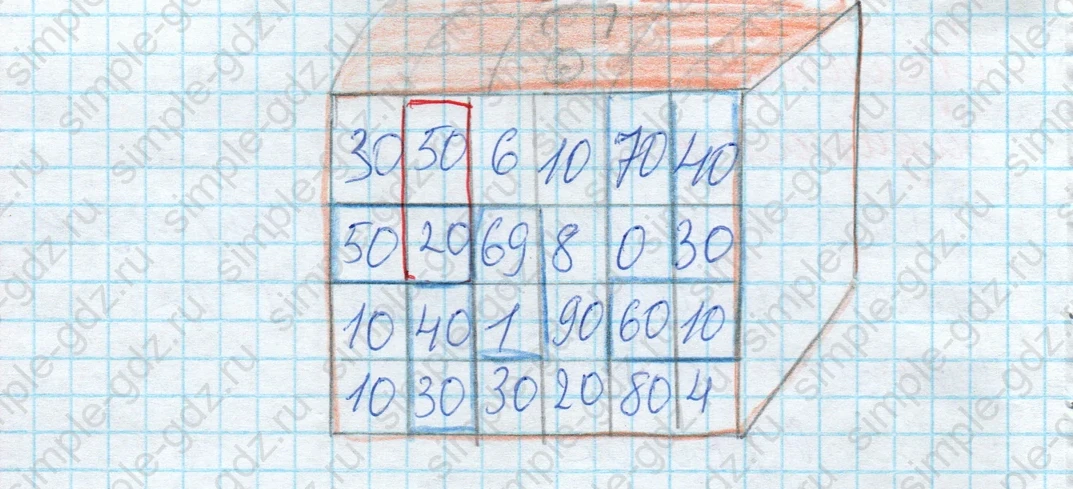 30 50 6 10 70 40
50 20 69 8 0 30
10 40 1 90 60 10
10 30 30 20 80 4
simple-gdz.ru